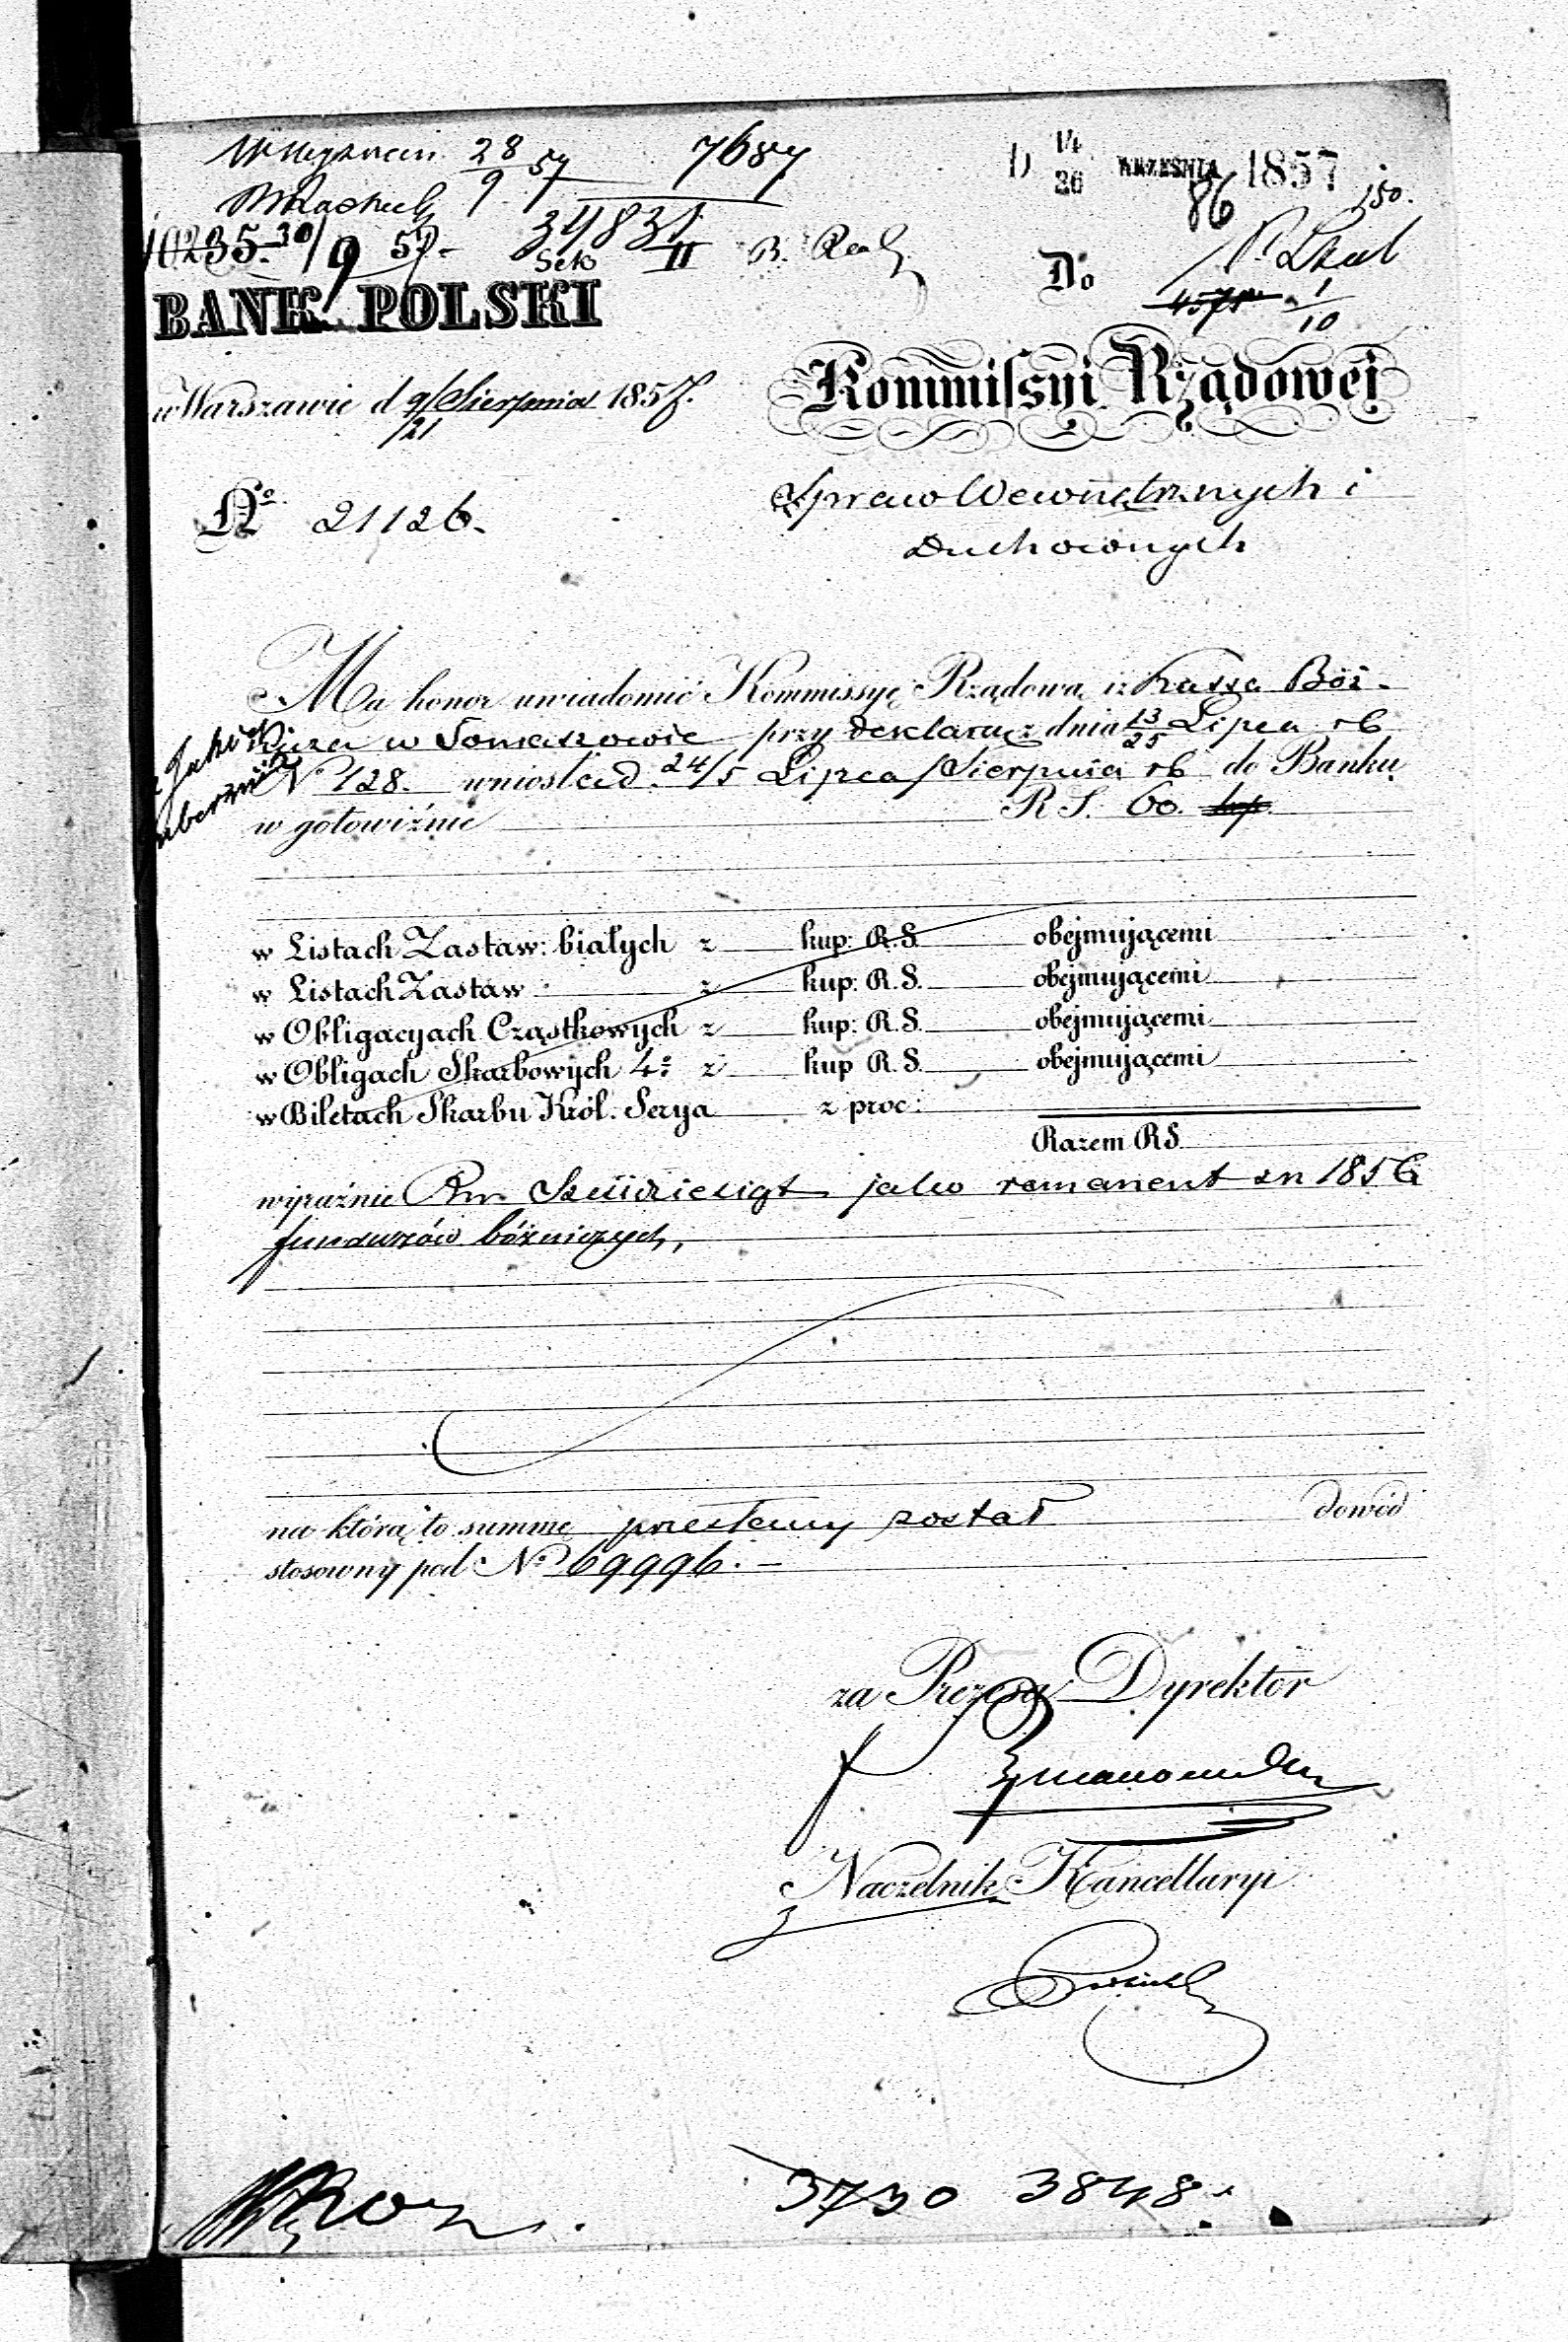 28/9 57 7687 D 14/26 WRZEŚNIA 1857
86 150.
10235. 30/9 57 34831
Sek II
BANK POLSKI
Do
1/10
w Warszawie d 9/21 Sierpnia 1857.
Kommissyi Rządowej
No 21126.
Spraw Wewnętrznych i
Duchownych
Ma honor uwiadomić Kommissyę Rządową iż Kassa Boż-
nicza w Tomaszowie przy deklaracyi z dnia 13/25 Lipca rb
No 128. wniosła d. 24/5 Lipca/Sierpnia rb do Banku
w gotowiźnie R S. 60. kop.
w Listach Zastaw: białych z kup: R.S. obejmującemi
w Listach Zastaw z kup: R.S. obejmującemi
w Obligacyach Cząstkowych z kup: R.S. obejmującemi
w Obligach Skarbowych 4% z kup R.S. obejmującemi
w Biletach Skarbu Król. Serya z proc:
Razem RS
wyraźnie Rsr. Sześćdziesiąt jako remanent zr 1856
funduszów bóżniczych,
na którą to summę przesłany został dowód
stosowny pod No 69996.
za Prezesa Dyrektor
Naczelnik Kancellaryi
3730 3848.